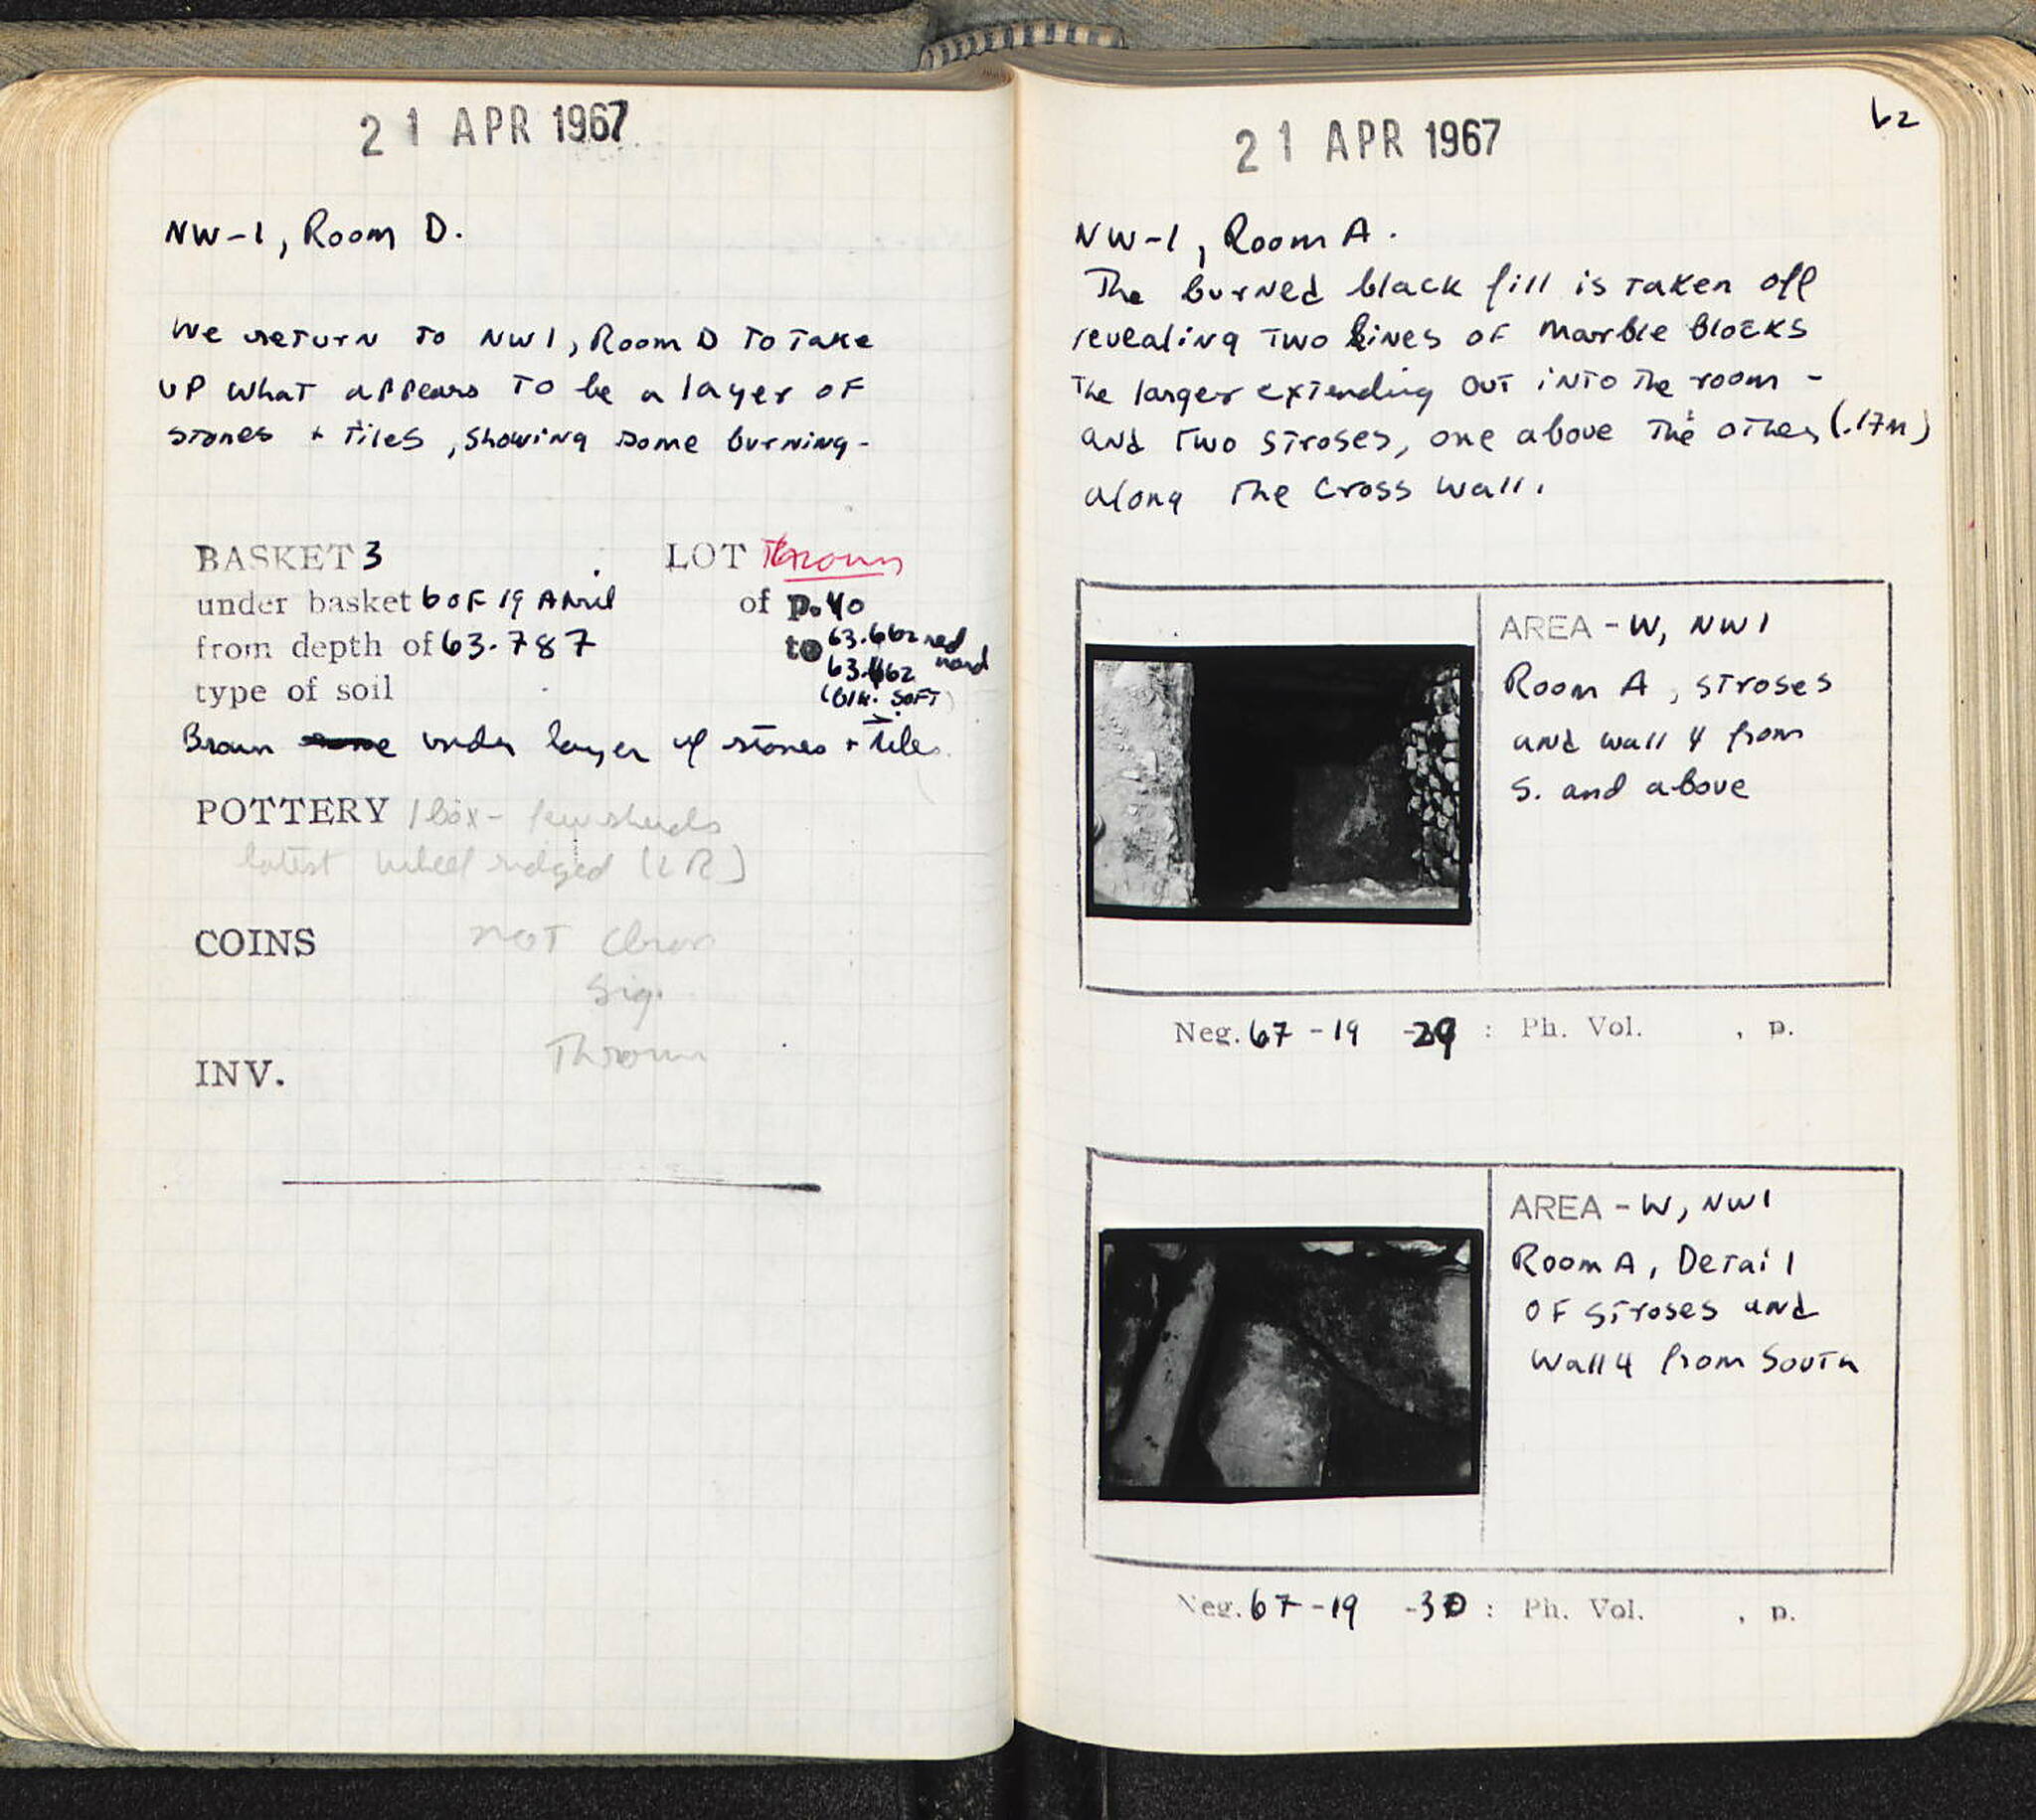 21 APR 1967
NW-1, Room D.
We return to NW1, Room D to take
up what appears to be a layer of
stones + tiles, showing some burning-
BASKET 3 LOT Thrown
under basket 6 of 19 April of p. 40
from depth of 63.787 to 63.662 red hard
63.462
type of soil (blk. soft)
Brown under layer of stones + tiles.
POTTERY 1 box - few sherds
latest wheel ridged (LR)
COINS not clear
sig.
Thrown
INV.
62
21 APR 1967
NW-1, Room A.
The burned black fill is taken off
revealing two lines of marble blocks
the larger extending out into the room -
and two stroses, one above the other (.17m)
along the cross wall.
AREA - W, NW1
Room A, stroses
and wall 4 from
S. and above
Neg. 67-19 -29 : Ph. Vol. , p.
AREA - W, NW1
Room A, Detail
of stroses and
wall 4 from South
Neg. 67-19 -30 : Ph. Vol. , p.